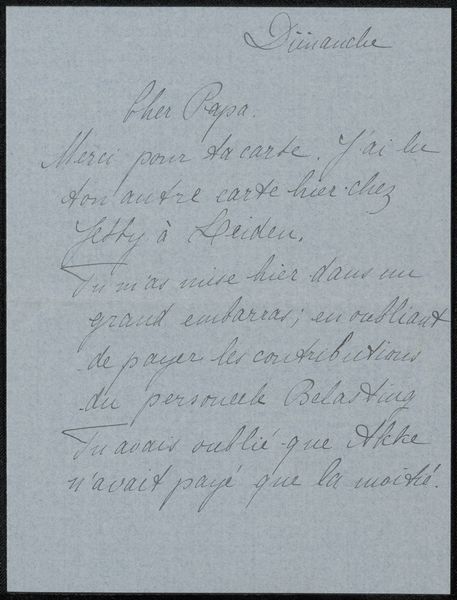 Dimanche
Cher Papa.
Merci pour ta carte. J'ai lu
ton autre carte hier chez
Jetty à Leiden.
Tu m'as mise hier dans un
grand embarras; en oubliant
de payer les contributions
du personeele Belasting
Tu avais oublié que Akke
n'avait payé que la moitié.